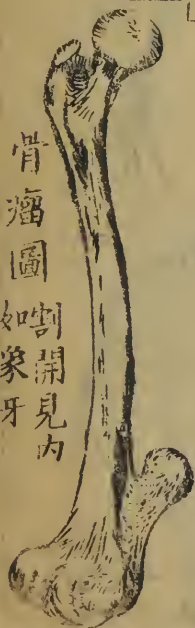 骨瘤圖
割開見内
如象牙